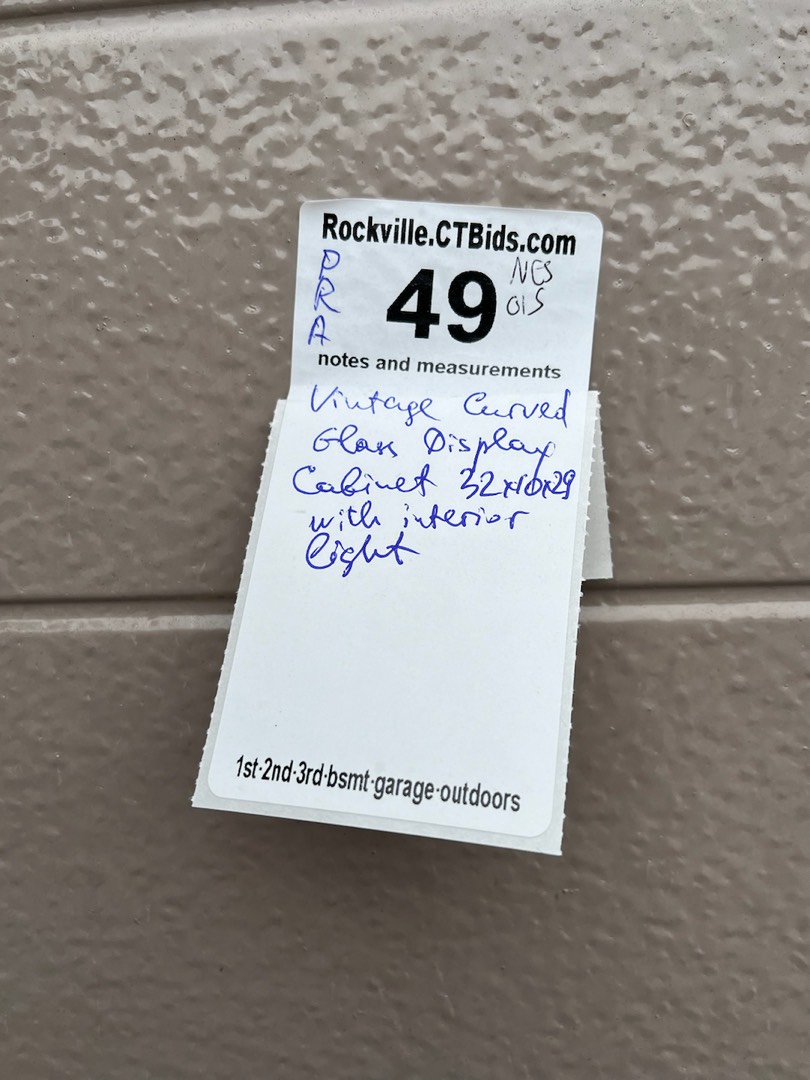 Rockville.CTBids.com
DRA
49
NES
015
notes and measurements
Vintage Curved
Glass Display
Cabinet 32x10x29
with interior
light
1st·2nd·3rd·bsmt·garage·outdoors